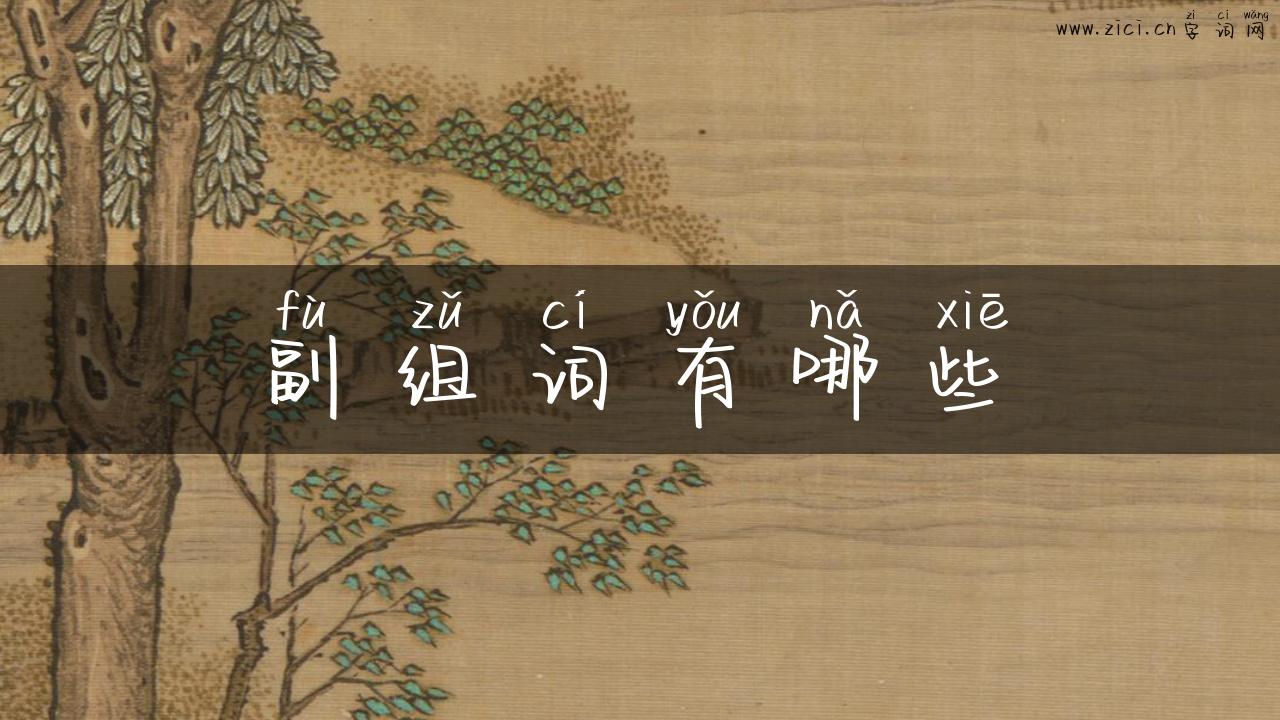 zì cí wǎng
www.zici.cn 字词网
fù zǔ cí yǒu nǎ xiē
副组词有哪些